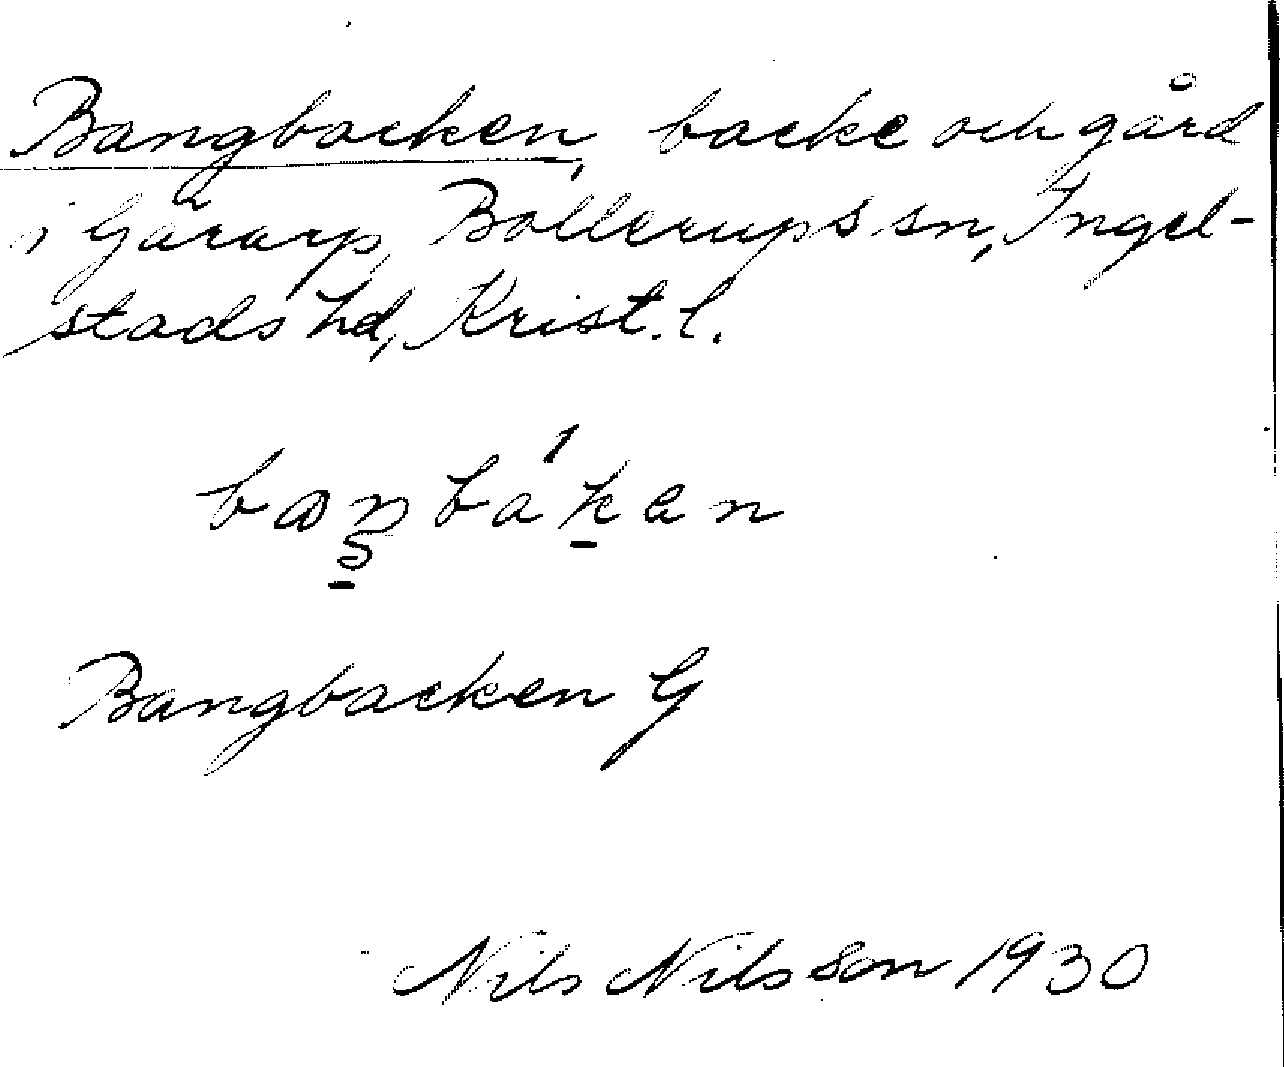 Bangbacken, backe och gård
i Gårarp, Bollerups sn, Ingel-
stads hd, Krist. l.
Bangbacken G
Nils Nilsson 1930